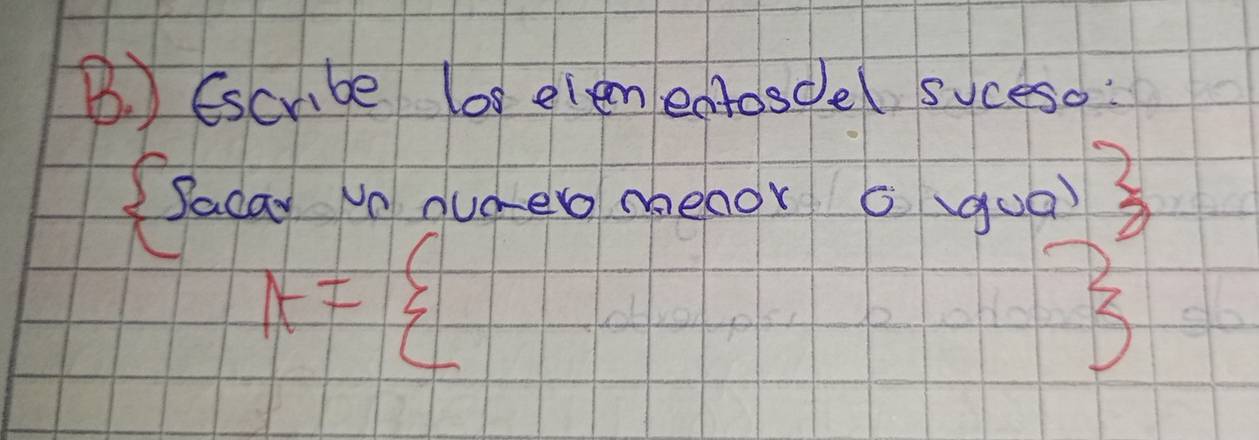 B.) Escribe los elementos del suceso:
{Sacar un numero menor o igual}
A = { }